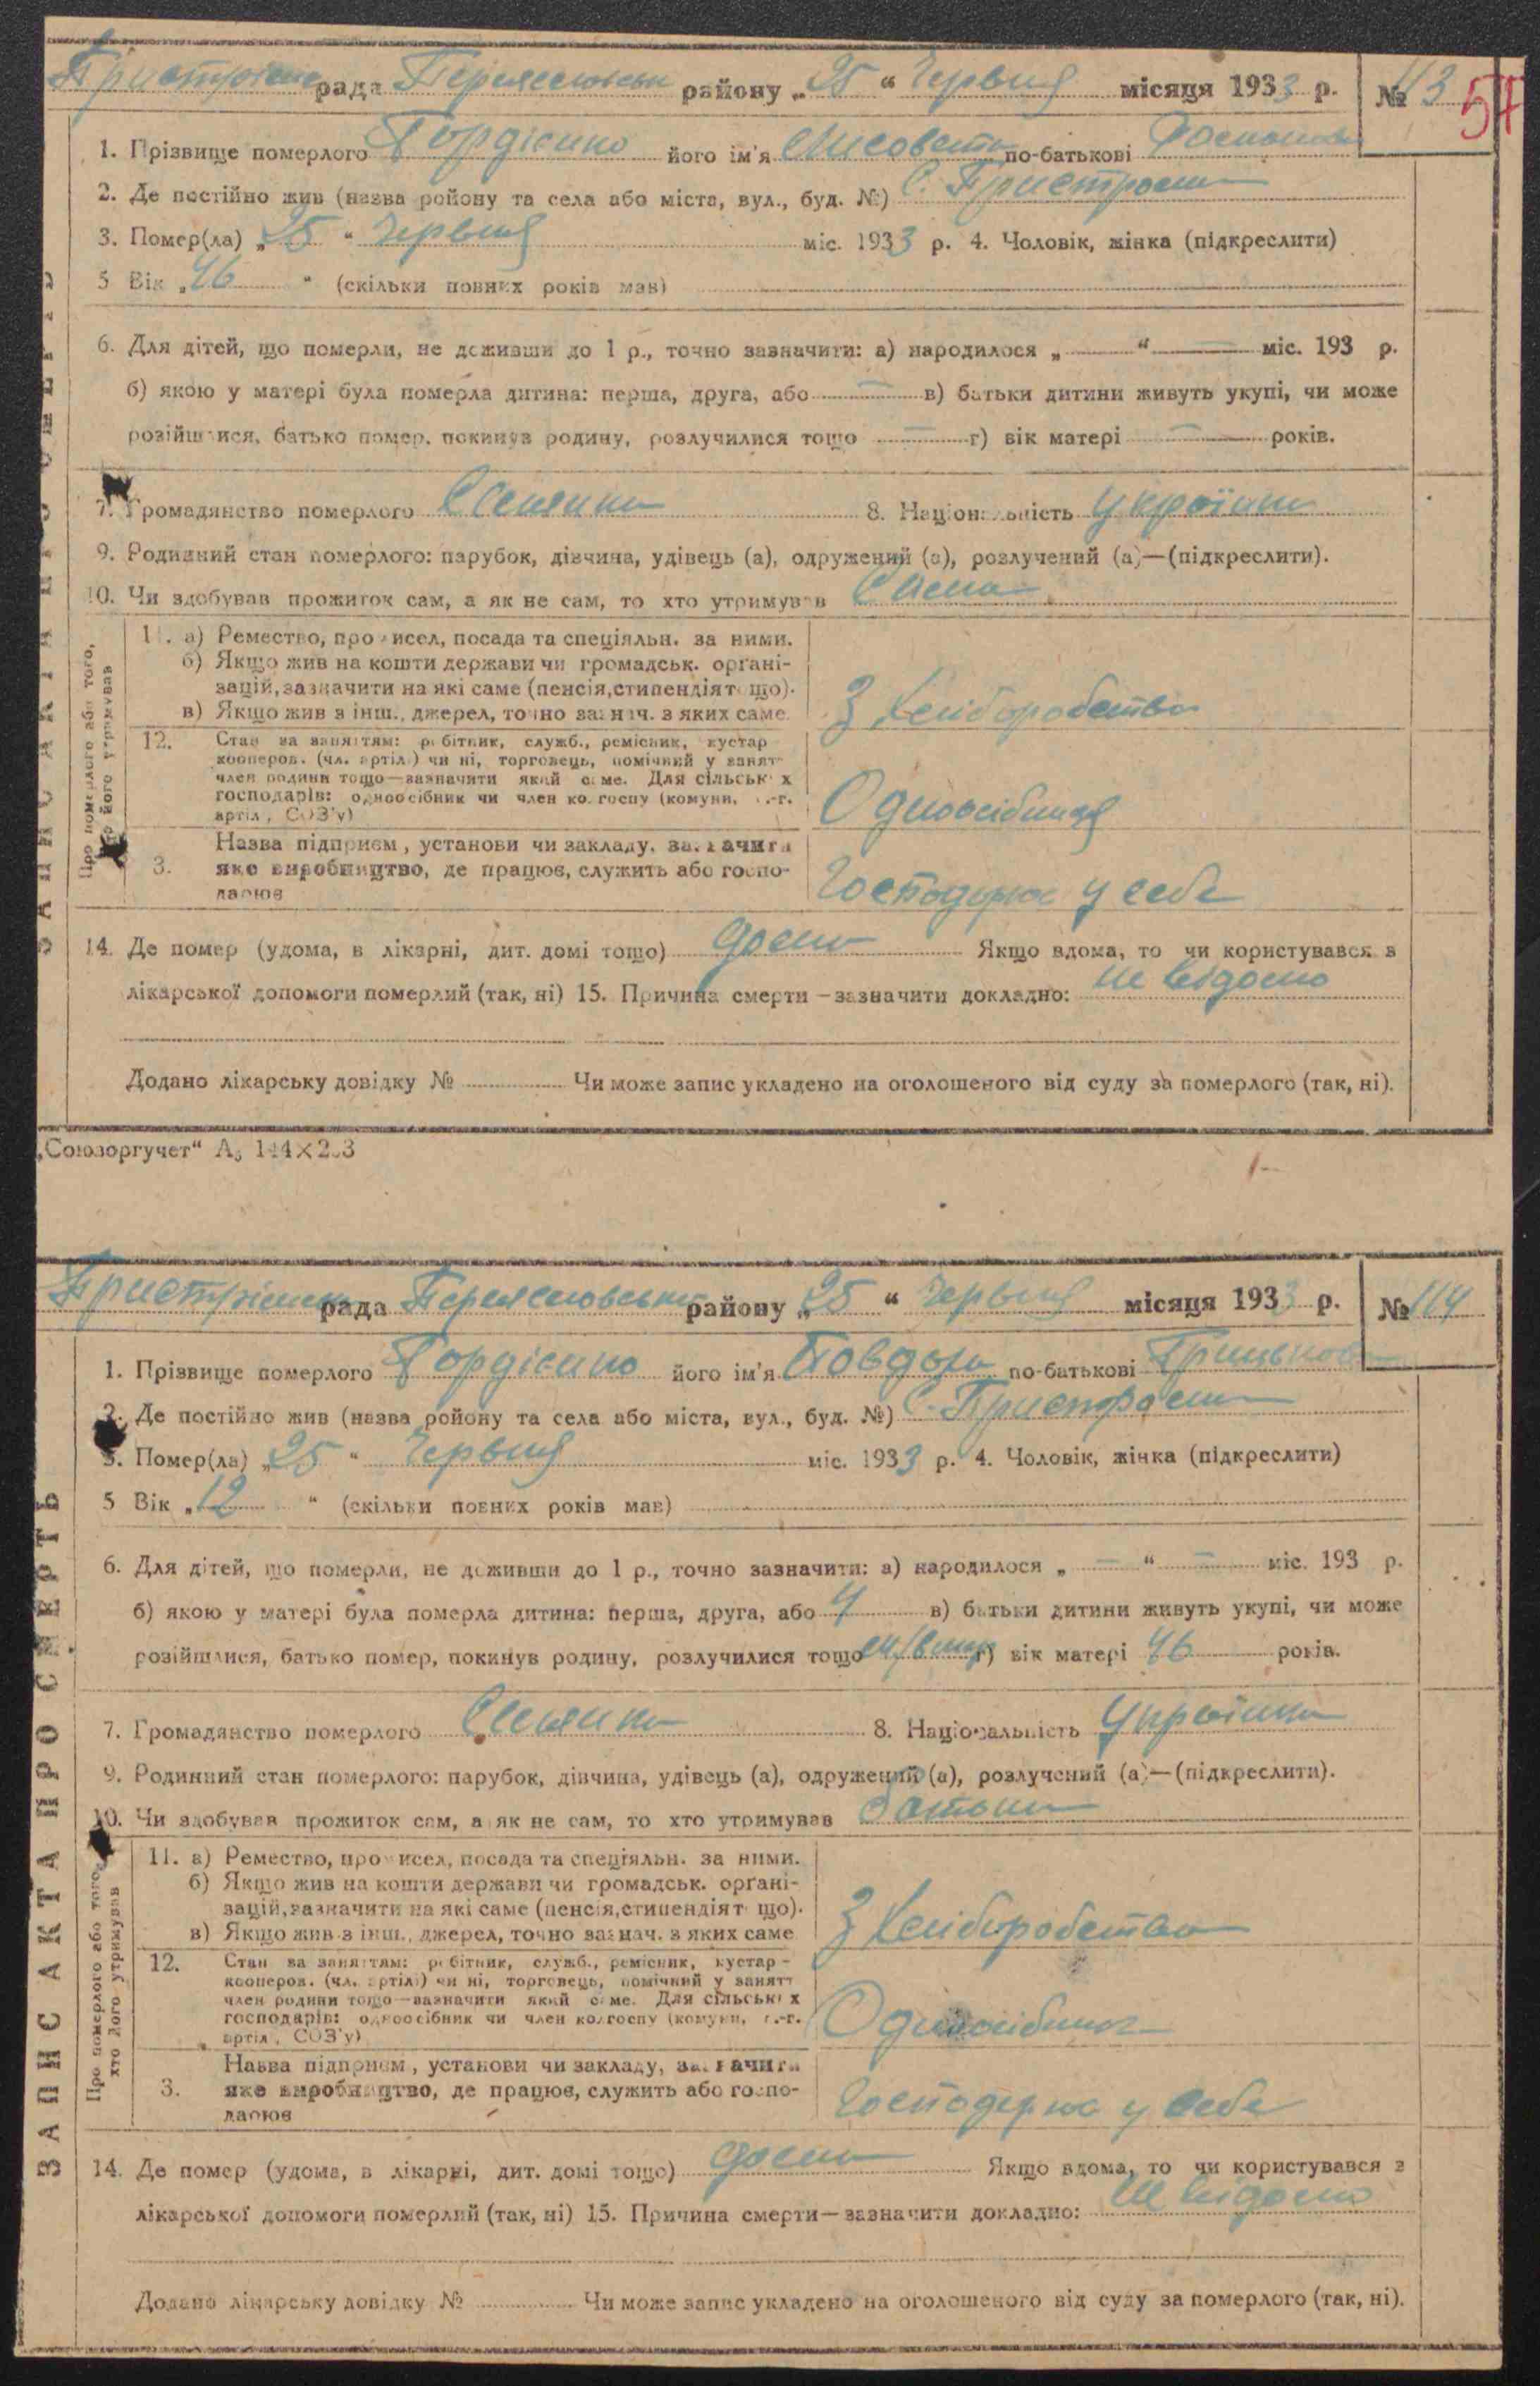 рада Переяславськ району „25“ Червня місяця 1933 р. № 113 57
1. Прізвище померлого Гордієнко його ім'я по-батькові
2. Де постійно жив (назва ройону та села або міста, вул., буд. №) с. Пристроми
3. Помер(ла) „25“ Червня міс. 1933 р. 4. Чоловік, жінка (підкреслити)
5 Вік „46“ (скільки повних років мав)
6. Для дітей, що померли, не доживши до 1 р., точно зазначити: а) народилося „—“ — міс. 193 р.
б) якою у матері була померла дитина: перша, друга, або — в) батьки дитини живуть укупі, чи може
розійшлися, батько помер, покинув родину, розлучилися тощо — г) вік матері — років.
7. Громадянство померлого 8. Національність Україн
9. Родинний стан померлого: парубок, дівчина, удівець (а), одружений (а), розлучений (а)—(підкреслити).
10. Чи здобував прожиток сам, а як не сам, то хто утримував Сама
ЗАПИС АКТА ПРО СМЕРТЬ
Про померлого або того,
хто його утримував
11. а) Ремество, промисел, посада та спеціяльн. за ними.
б) Якщо жив на кошти держави чи громадськ. органі-
зацій, зазначити на які саме (пенсія, стипендія тощо).
в) Якщо жив з інш., джерел, точно зазнач. з яких саме
З хліборобства
12. Стан за заняттям: робітник, служб., ремісник, кустар
кооперов. (чл. артілі) чи ні, торговець, помічний у занят
член родини тощо—зазначити який саме. Для сільських
господарів: одноосібник чи член колгоспу (комуни, с.-г.
артіл, СОЗ'у)
Одноосібниця
3. Назва підприєм, установи чи закладу, зазначити
яке виробництво, де працює, служить або госпо-
дарює
Господарює у себе
14. Де помер (удома, в лікарні, дит. домі тощо) дома Якщо вдома, то чи користувався з
лікарської допомоги померлий (так, ні) 15. Причина смерти—зазначити докладно: не відомо
Додано лікарську довідку № Чи може запис укладено на оголошеного від суду за померлого (так, ні).
„Союзоргучет“ А₅ 144×203
рада Переяславськ району „25“ Червня місяця 1933 р. № 114
1. Прізвище померлого Гордієнко його ім'я Повдоха по-батькові Грицьков
2. Де постійно жив (назва ройону та села або міста, вул., буд. №) с. Пристроми
3. Помер(ла) „25“ Червня міс. 1933 р. 4. Чоловік, жінка (підкреслити)
5 Вік „12“ (скільки повних років мав)
6. Для дітей, що померли, не доживши до 1 р., точно зазначити: а) народилося „—“ — міс. 193 р.
б) якою у матері була померла дитина: перша, друга, або 4 в) батьки дитини живуть укупі, чи може
розійшлися, батько помер, покинув родину, розлучилися тощо г) вік матері 46 років.
7. Громадянство померлого 8. Національність Українка
9. Родинний стан померлого: парубок, дівчина, удівець (а), одружений (а), розлучений (а)—(підкреслити).
10. Чи здобував прожиток сам, а як не сам, то хто утримував батьки
ЗАПИС АКТА ПРО СМЕРТЬ
Про померлого або того,
хто його утримував
11. а) Ремество, промисел, посада та спеціяльн. за ними.
б) Якщо жив на кошти держави чи громадськ. органі-
зацій, зазначити на які саме (пенсія, стипендія тощо).
в) Якщо жив з інш., джерел, точно зазнач. з яких саме
З хліборобства
12. Стан за заняттям: робітник, служб., ремісник, кустар -
кооперов. (чл. артілі) чи ні, торговець, помічний у занятт
член родини тощо—зазначити який саме. Для сільських
господарів: одноосібник чи член колгоспу (комуни, с.-г.
артіл, СОЗ'у)
Одноосібник
3. Назва підприєм, установи чи закладу, зазначити
яке виробництво, де працює, служить або госпо-
дарює
Господарює у себе
14. Де помер (удома, в лікарні, дит. домі тощо) дома Якщо вдома, то чи користувався з
лікарської допомоги померлий (так, ні) 15. Причина смерти—зазначити докладно: не відомо
Додано лікарську довідку № Чи може запис укладено на оголошеного від суду за померлого (так, ні).